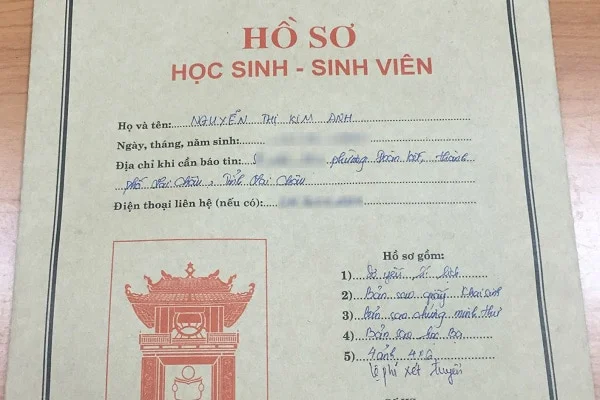 HỒ SƠ
HỌC SINH - SINH VIÊN
Họ và tên: NGUYỄN THỊ KIM ANH
Ngày, tháng, năm sinh:
Địa chỉ khi cần báo tin: phường Đoàn Kết, thành
phố Lai Châu, tỉnh Lai Châu
Điện thoại liên hệ (nếu có):
Hồ sơ gồm:
1) Sơ yếu lí lịch
2) Bản sao giấy khai sinh
3) Bản sao chứng minh thư
4) Bản sao học bạ
5) 4 ảnh
lệ phí xét tuyển